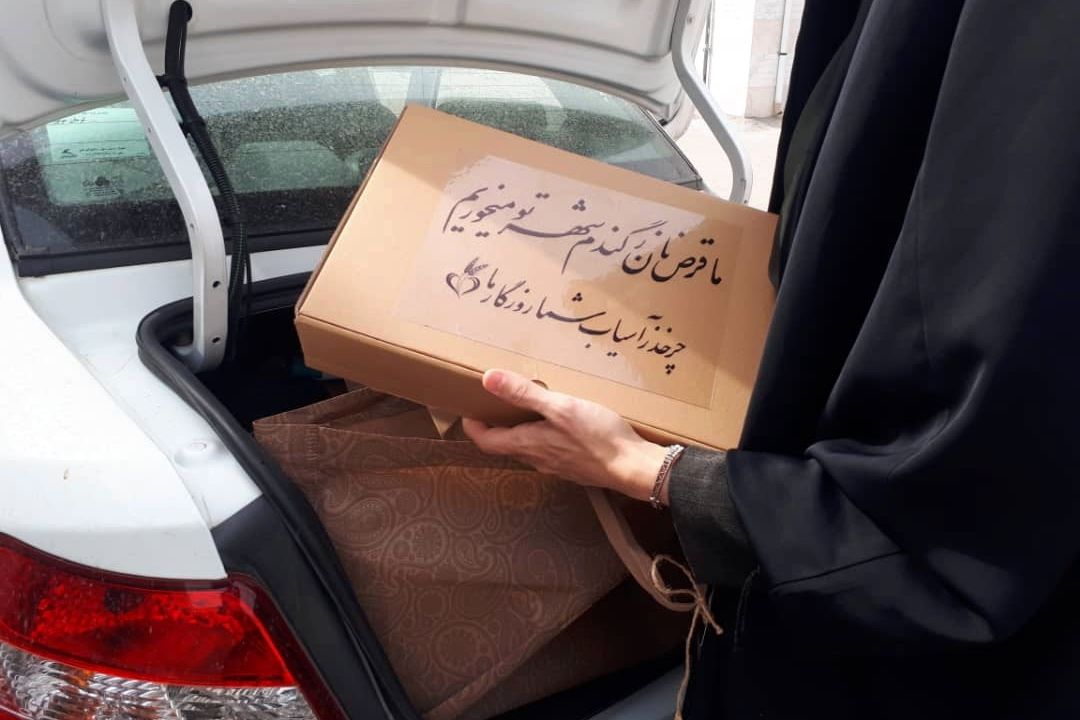 ما قرص نان ز گندم شهر تو میخوریم
چرخد ز آسیاب شما روزگار ما